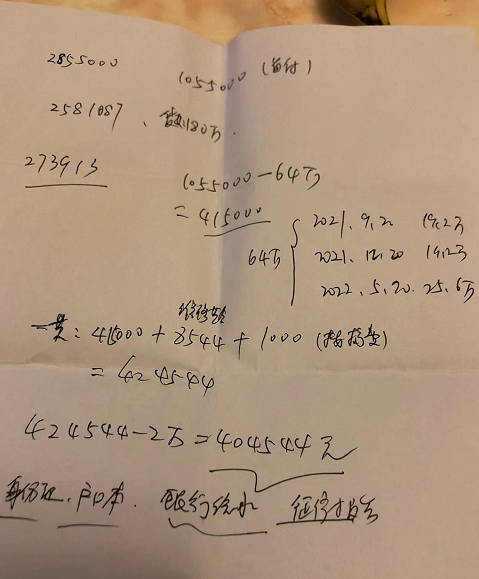 2855000 1055000 (首付)
2581087、贷款180万.
273913
1055000-64万
=415000
64万 { 2021、9、20 19.2万
2021、12、20 19.2万
2022、5、20. 25.6万
维修基金
一共: 415000+8544+1000
=424544
424544-2万=404544元
身份证、户口本. 银行流水 征信报告